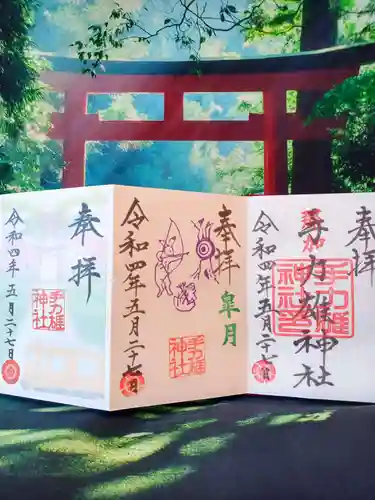 奉拝
那加
手力雄神社
令和四年五月二十七日
奉拝
皐月
手力雄
神社
令和四年五月二十七日
奉拝
手力雄
神社
令和四年五月二十七日